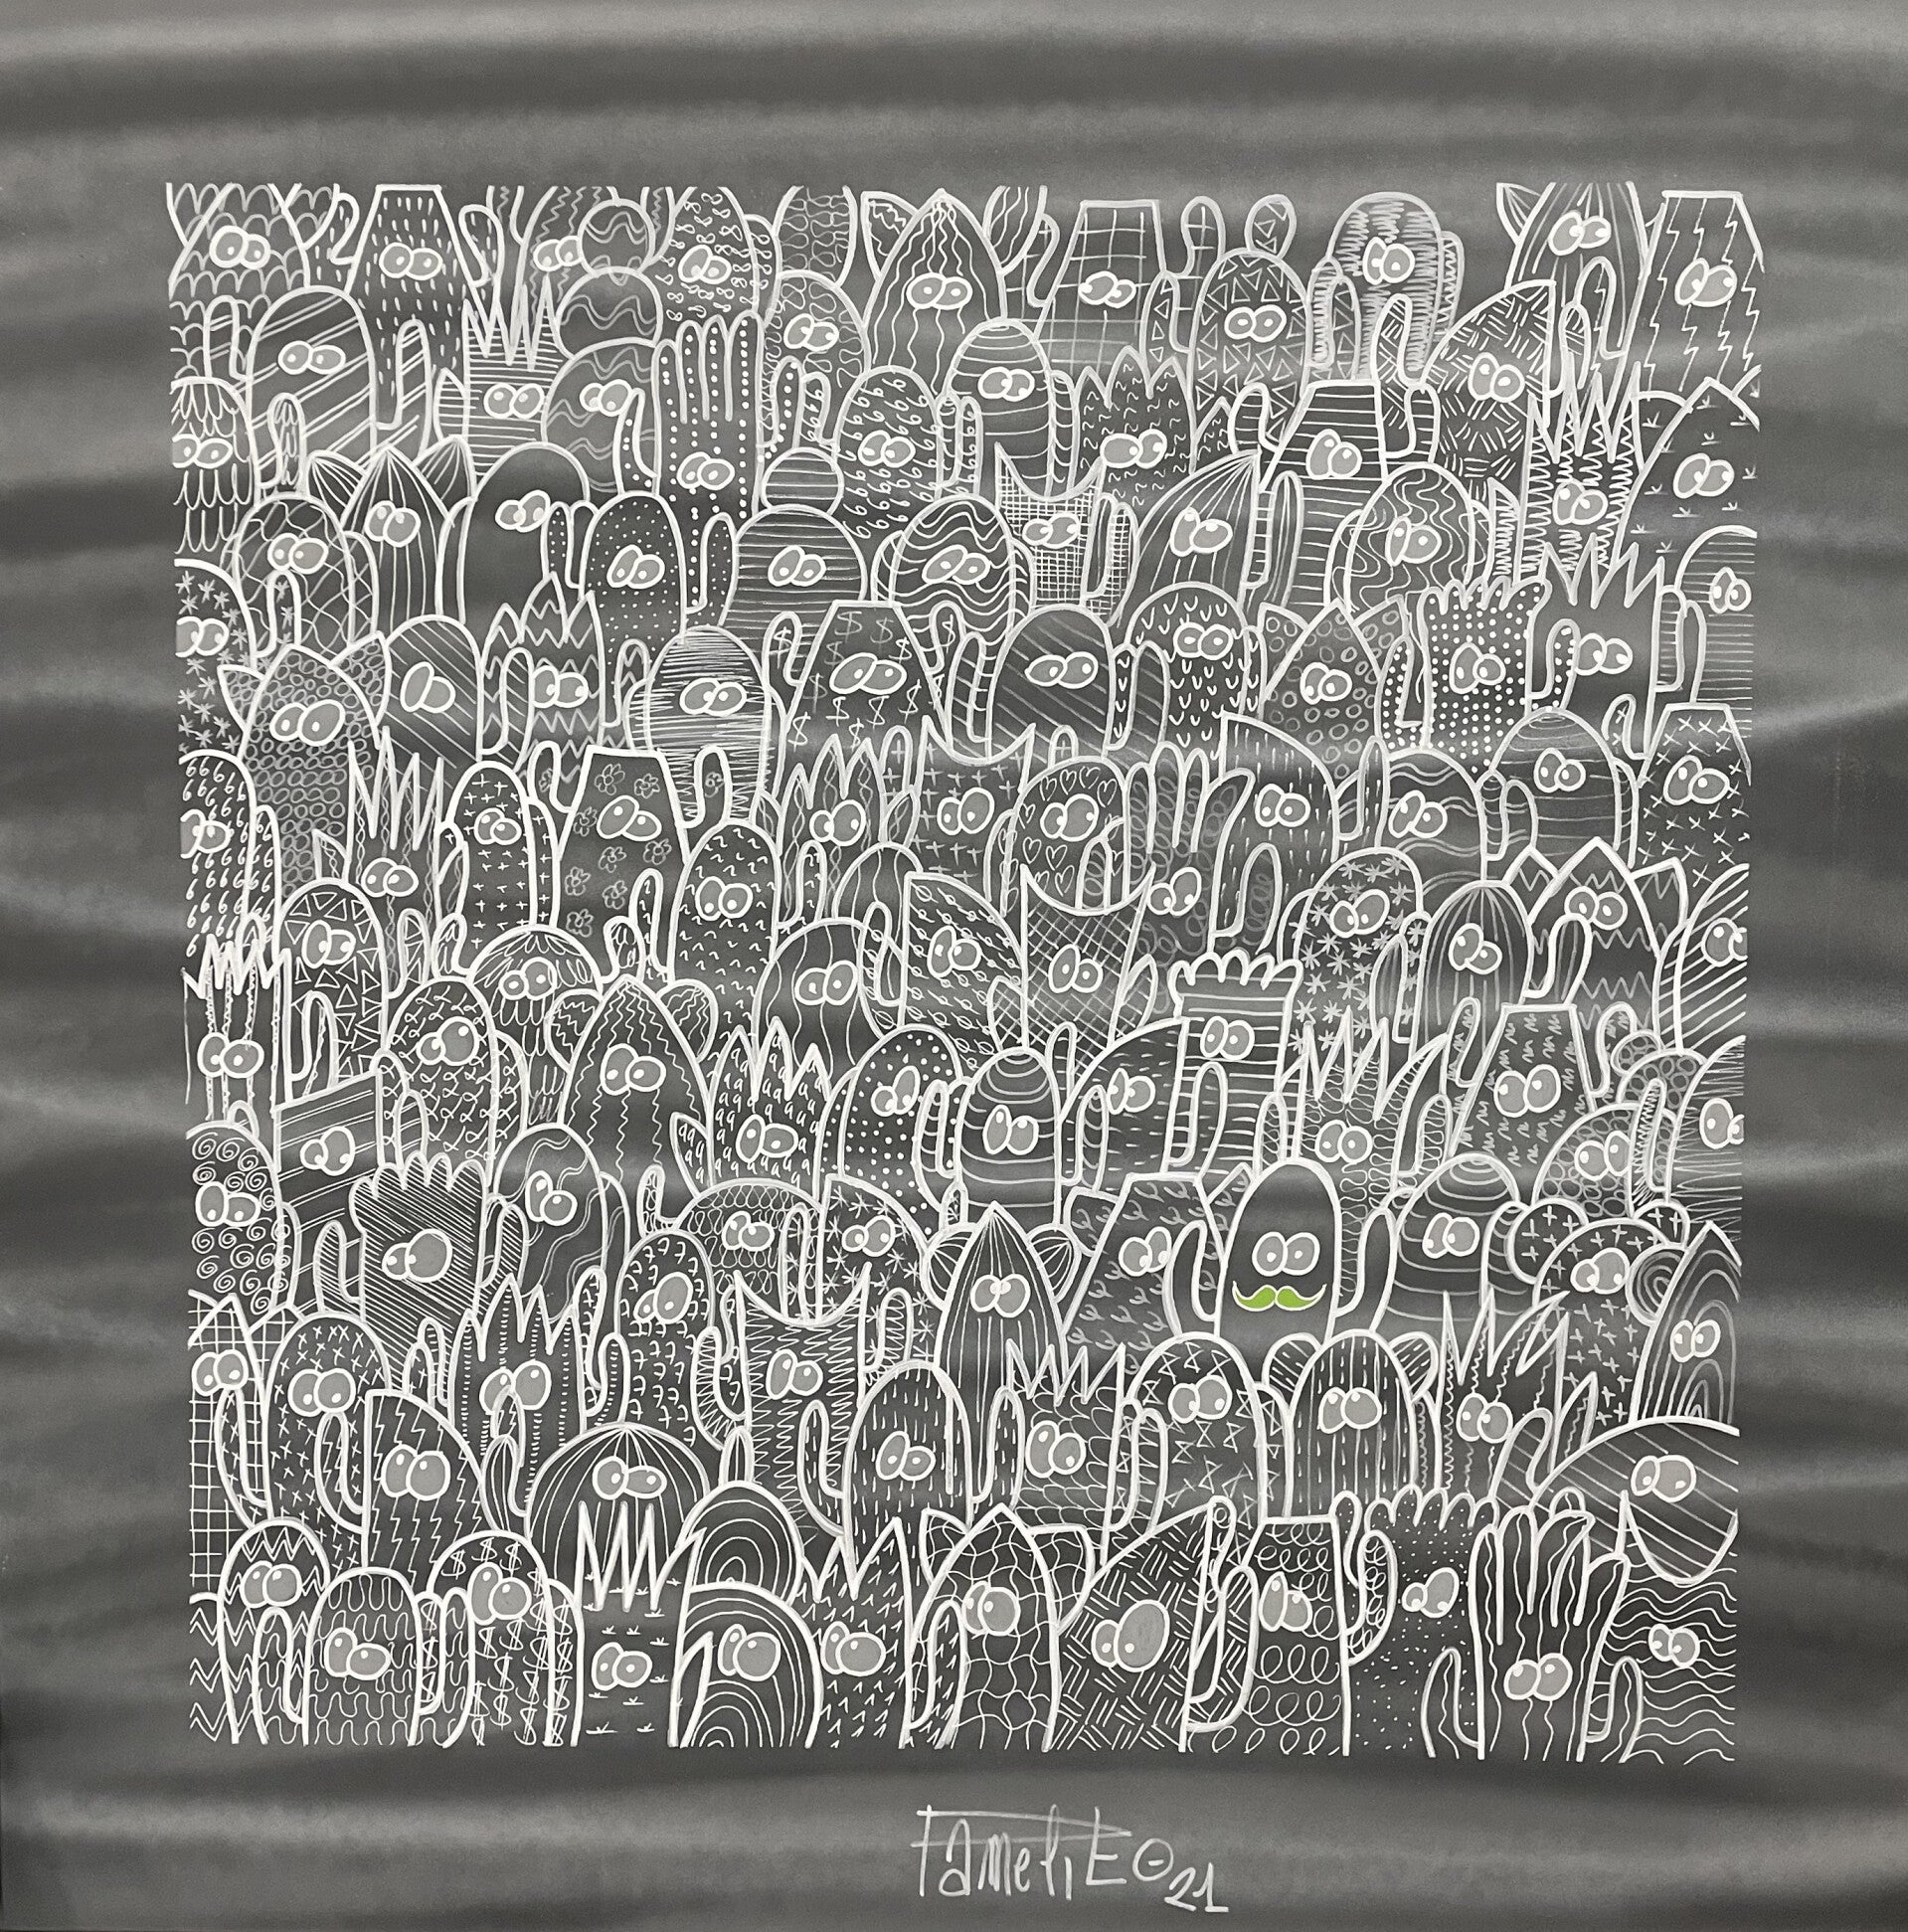 FameliE Θ 21